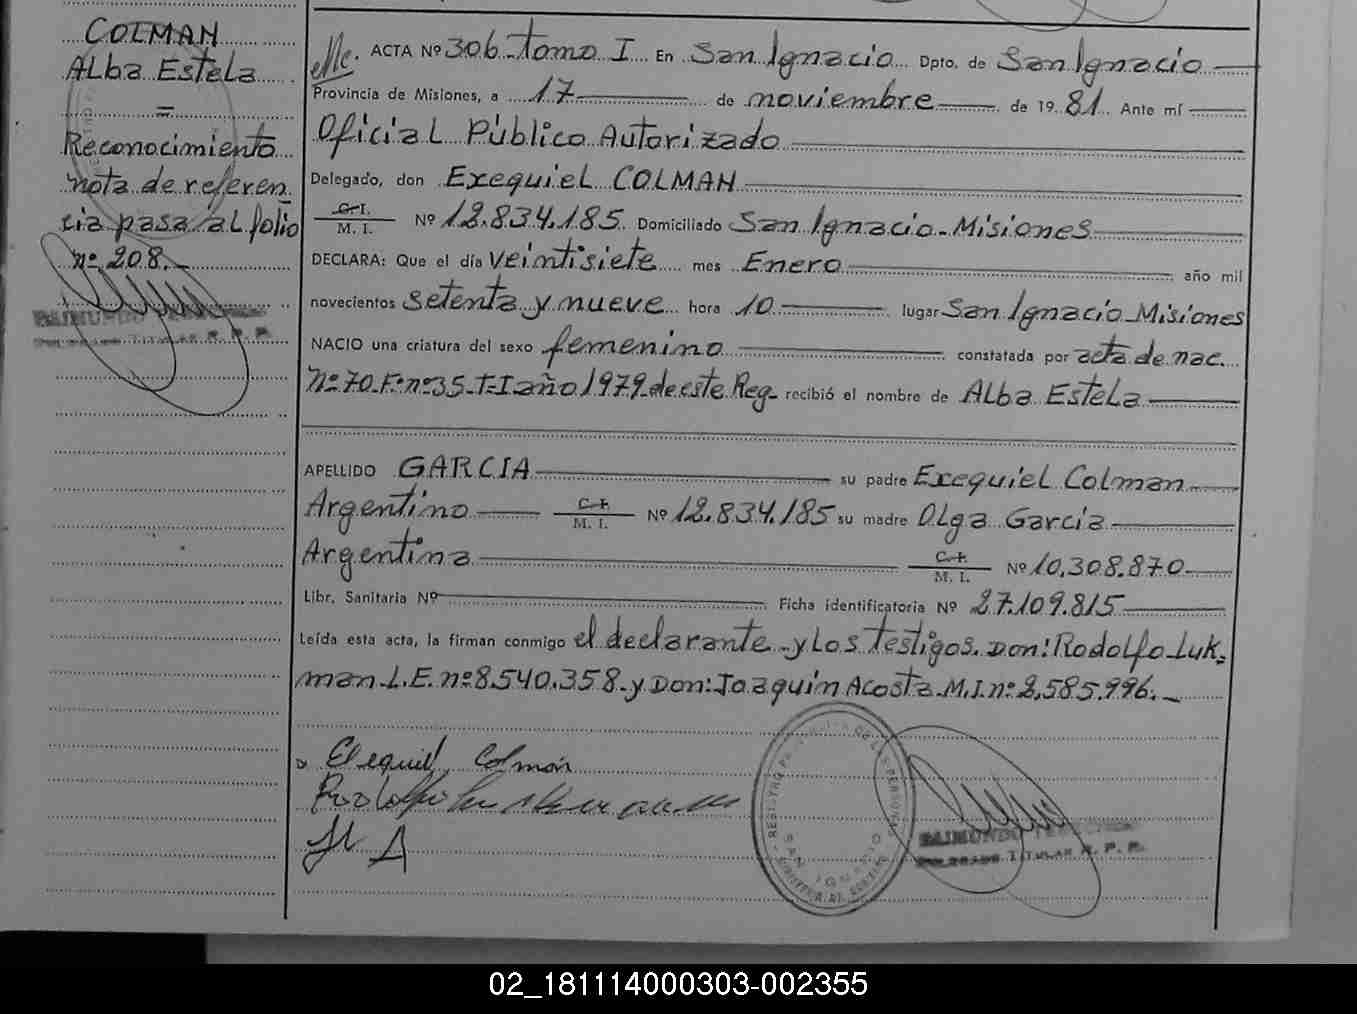 COLMAN
Alba Estela
=
Reconocimiento
nota de referen
cia pasa al folio
nº 208.-
RAIMUNDO
TITULAR R. P. P.
ACTA Nº 306 - Tomo I En San Ignacio Dpto. de San Ignacio
Provincia de Misiones, a 17 de noviembre de 19 81 Ante mí
Oficial Público Autorizado
Delegado, don Exequiel COLMAN
C. I.
M. I. Nº 12.834.185 Domiciliado San Ignacio - Misiones
DECLARA: Que el día veintisiete mes Enero año mil
novecientos setenta y nueve hora 10 lugar San Ignacio - Misiones
NACIO una criatura del sexo femenino constatada por acta de nac.
Nº 70 - Fº nº 35 - T - I año 1979 - de este Reg - recibió el nombre de Alba Estela
APELLIDO GARCIA su padre Exequiel Colman
Argentino C. I.
M. I. Nº 12.834.185 su madre Olga Garcia
Argentina C. I.
M. I. Nº 10.308.870
Libr. Sanitaria Nº Ficha identificatoria Nº 27.109.815
Leída esta acta, la firman conmigo el declarante - y los testigos. Don: Rodolfo Luk-
man - L.E. nº 8.540.358 - y Don: Joaquin Acosta - M.I. nº 2.585.996. -
Exequiel Colman
Rodolfo
J A
REGISTRO DE LAS PERSONAS
SAN IGNACIO
RAIMUNDO
DELEGADO TITULAR R. P. P.
02_181114000303-002355